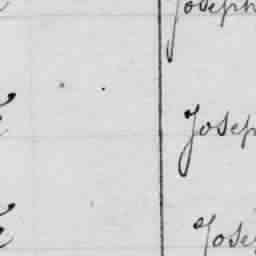 Joseph
Josep
Jose